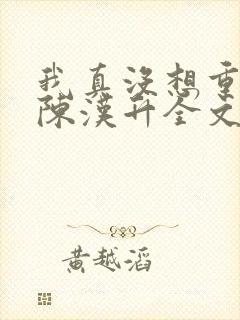 我真没想重
陈漢升全文
黄越滔